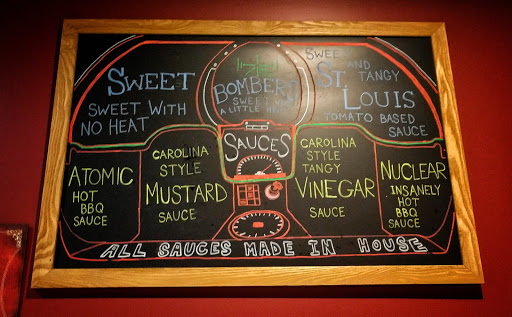 SWEET
SWEET WITH
NO HEAT
BOMBERS
SWEET WITH
A LITTLE HEAT
SWEET
AND
TANGY
ST. LOUIS
TOMATO BASED
SAUCE
SAUCES
ATOMIC
HOT
BBQ
SAUCE
CAROLINA
STYLE
MUSTARD
SAUCE
CAROLINA
STYLE
TANGY
VINEGAR
SAUCE
NUCLEAR
INSANELY
HOT
BBQ
SAUCE
ALL SAUCES MADE IN HOUSE